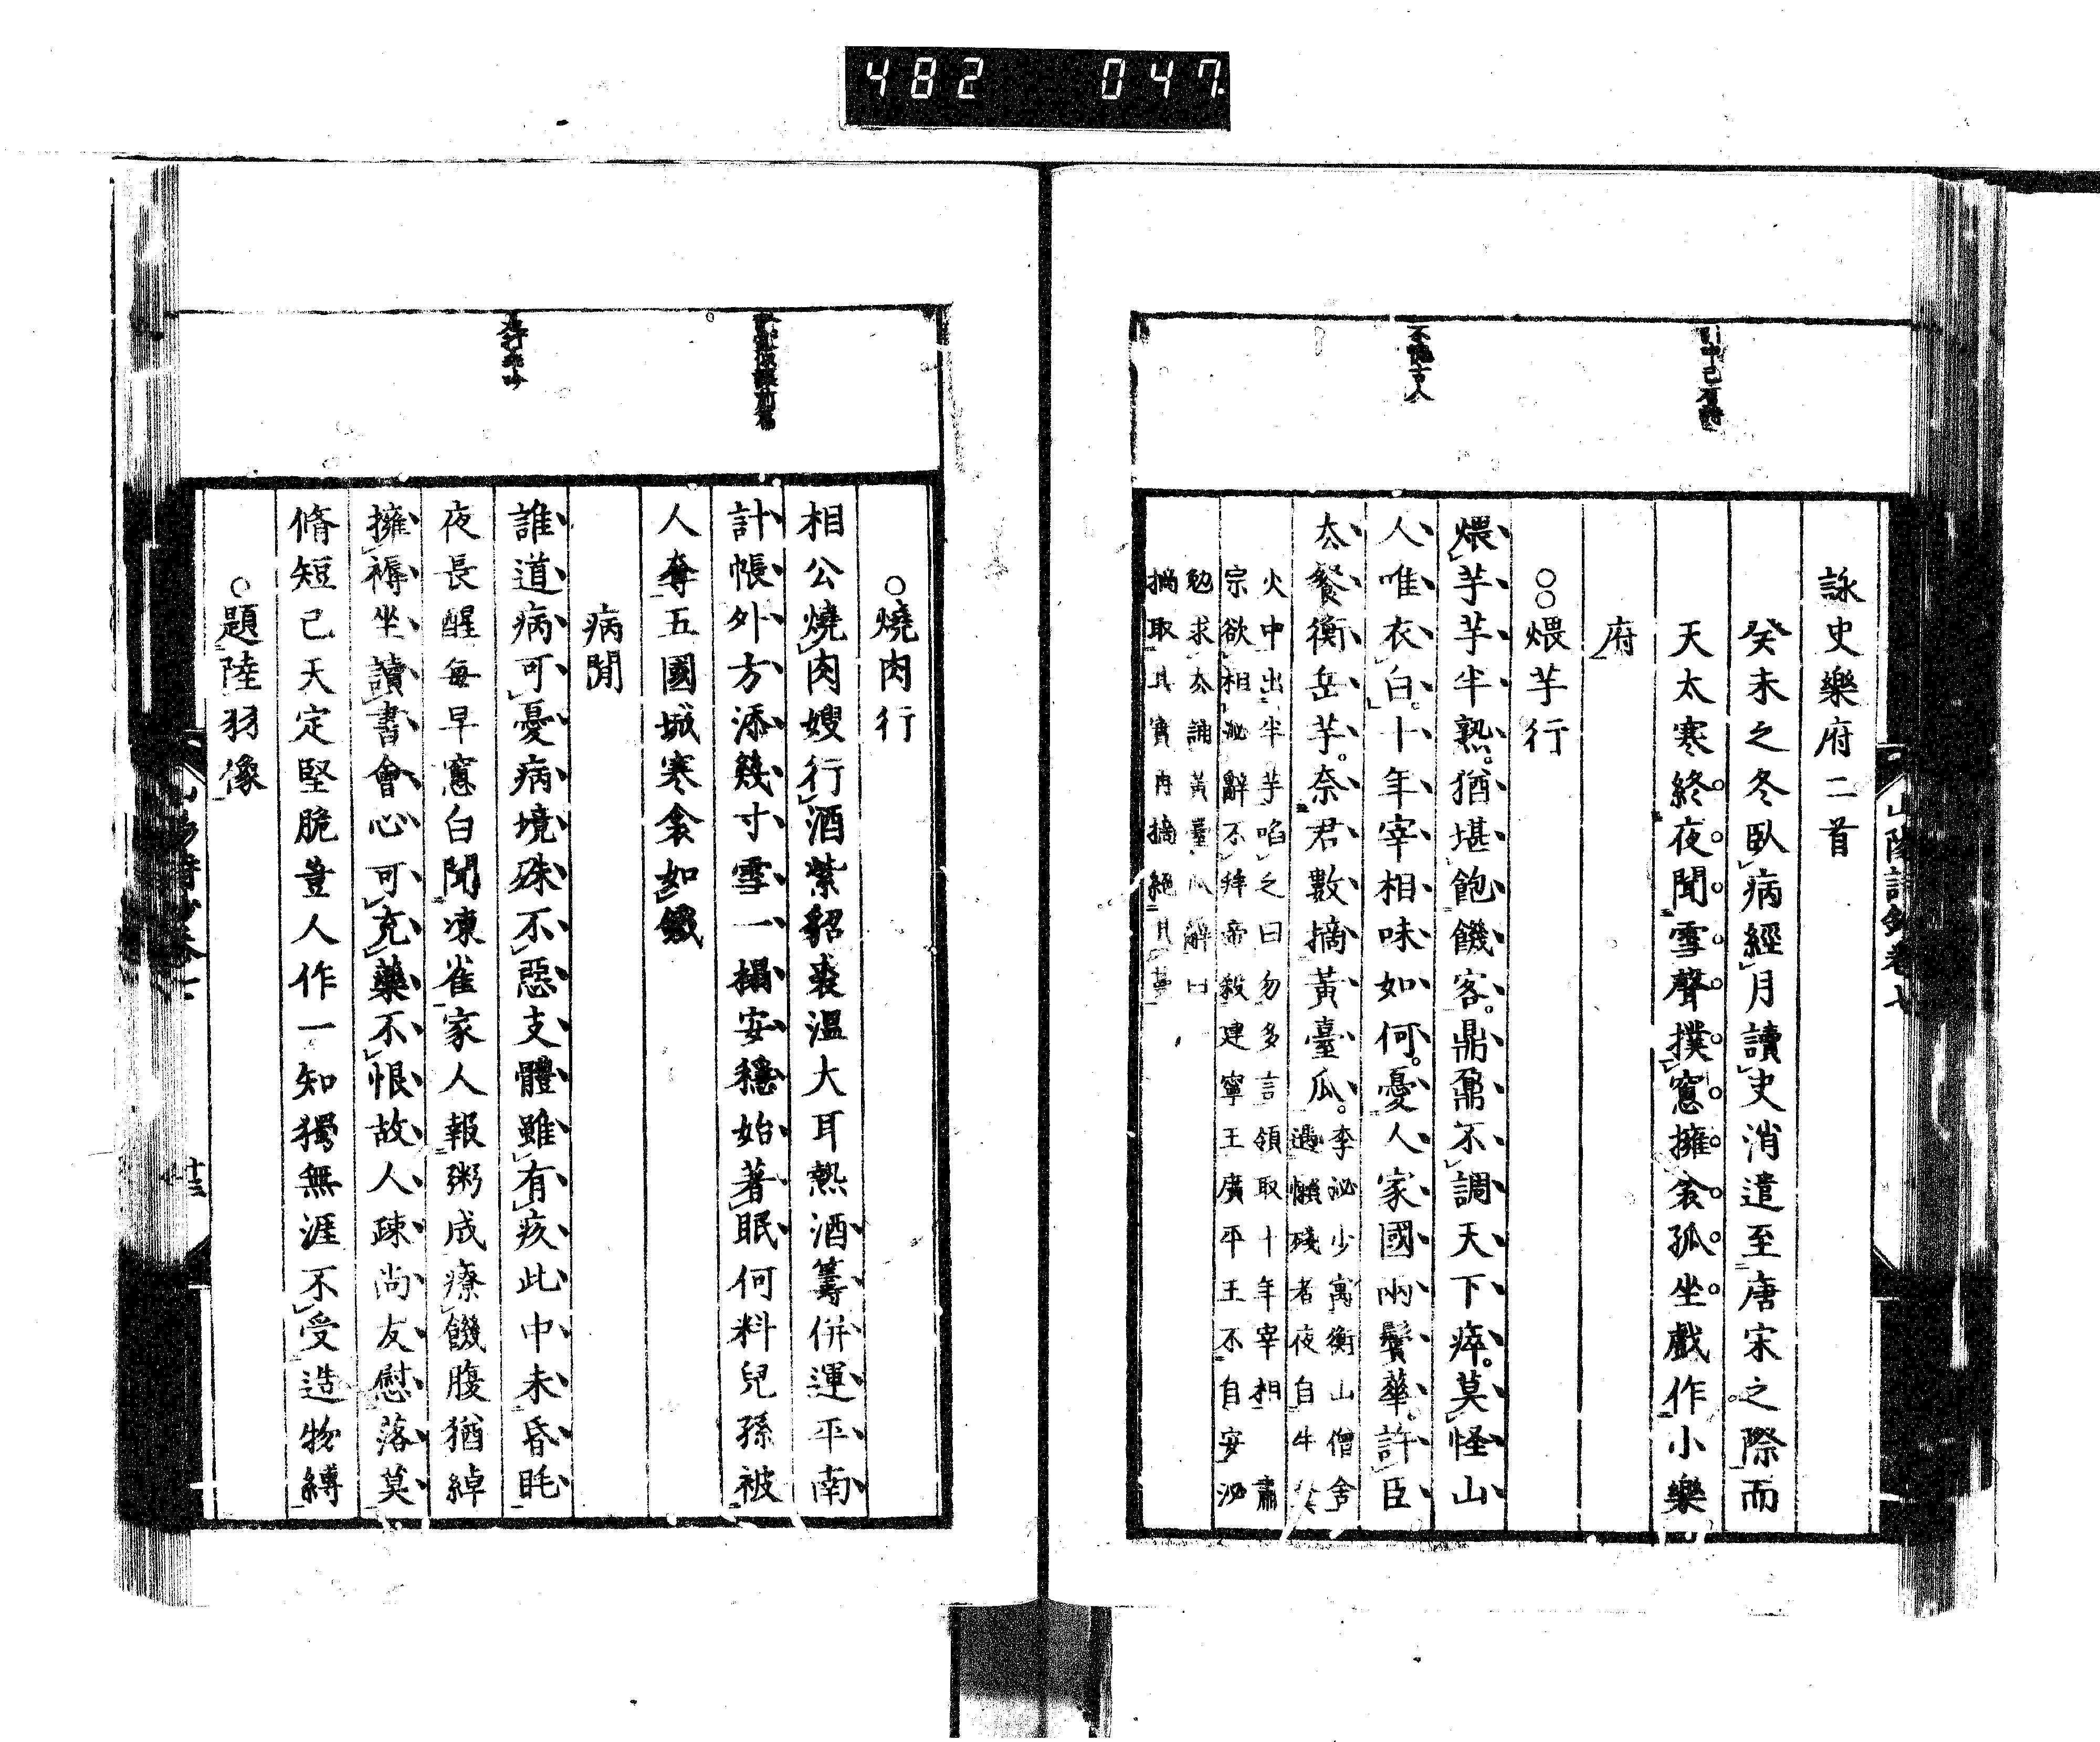 482 047.
山陽詩鈔卷七
不愧古人
詠史樂府二首
癸未之冬臥病經月讀史消遣至唐宋之際而
天太寒終夜聞雪聲撲窻擁衾孤坐戲作小樂
府
○○煨芋行
煨芋芋半熟。猶堪飽饑客。鼎鼐不調天下瘁。莫怪山
人唯衣白。十年宰相味如何。憂人家國兩鬢華。許臣
太餐衡岳芋。奈君數摘黃臺瓜。李泌少寓衡山僧舍
過懶殘者夜自牛
火中出半芋啗之曰勿多言領取十年宰相 肅
宗欲相泌辭不拜帝殺建寧王廣平王不自安泌
勉求太誦黃臺瓜辭曰
摘取其實再摘絕其
○燒肉行
相公燒肉嫂行酒紫貂裘溫大耳熱酒籌併運平南
計帳外方添幾寸雪一榻安穩始著眠何料兒孫被
人奪五國城寒衾如鐵
病閒
誰道病可憂病境殊不惡支體雖有疾此中未昏眊
夜長醒每早窻白聞凍雀家人報粥成療饑腹猶綽
擁褥坐讀書會心可充藥不恨故人疎尚友慰落莫
脩短已天定堅脆豈人作一知獨無涯不受造物縛
○題陸羽像